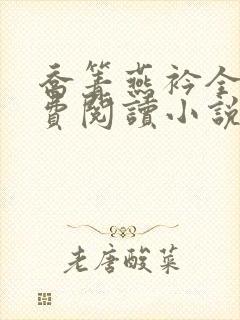 喬箐燕衿全
費閱讀小說
老唐酸菜